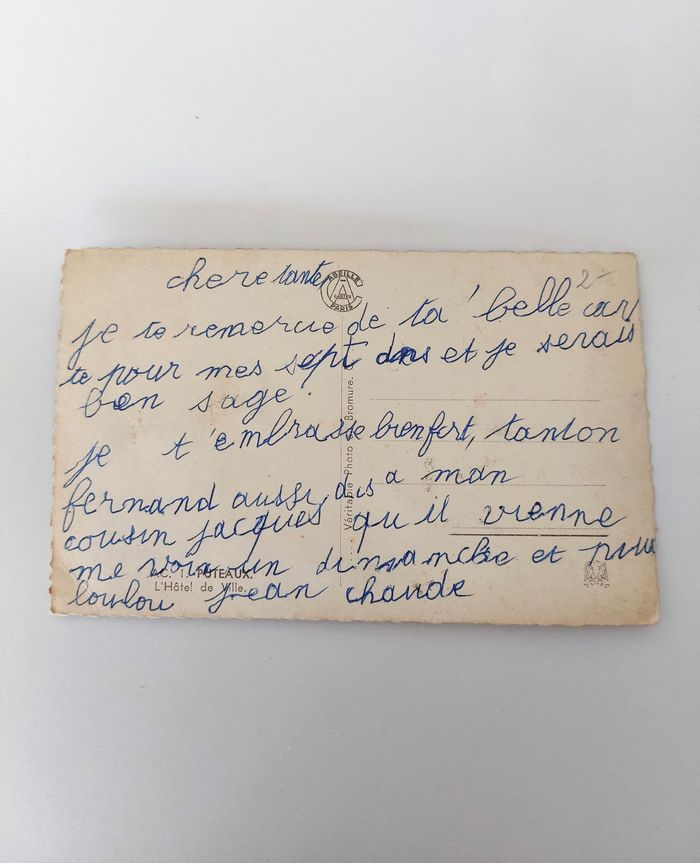 chere tante
ABEILLE
A
CARTES
PARIS
2-
je te remercie de ta belle car
te pour mes sept ans et je serais
bien sage.
je t'embrasse bien fort, tonton
fernand aussi, dis a mon
cousin jacques qu il vienne
me voir un dimanche et
loulou Jean chaude
Véritable Photo Bromure.
AC. 1. PUTEAUX.
L'Hôtel de Ville.